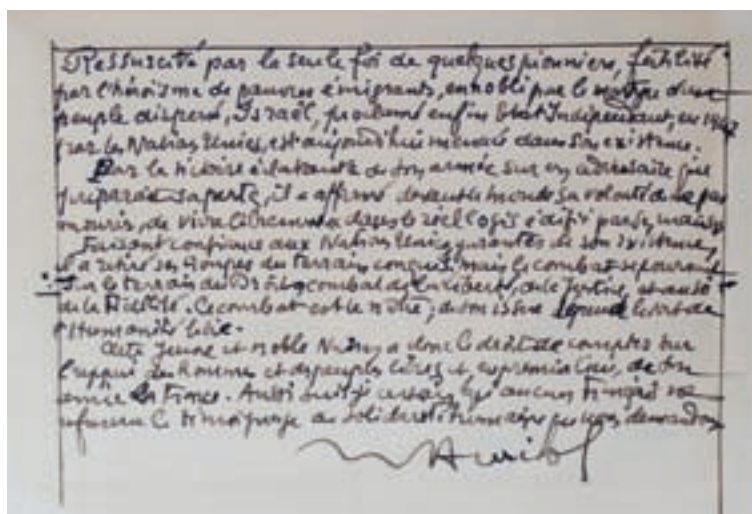 Ressuscité par la seule foi de quelques pionniers, fertilisé
par l'héroïsme de pauvres émigrants, ennobli par le martyre d'un
peuple dispersé, Israël, proclamé enfin Etat Indépendant, en 1947
par les Nations Unies, est aujourd'hui menacé dans son existence.
Par la victoire éclatante de son armée sur un adversaire qui
préparait sa perte, il a affirmé devant le monde sa volonté de ne pas
mourir, de vivre librement dans le réel logis édifié par ses mains
Faisant confiance aux Nations Unies, garantes de son existence,
il a retiré ses troupes du terrain conquis, mais le combat se poursuit
sur le terrain du Droit, combat de la liberté, de la Justice, et aussi
de la Fidélité. Ce combat est le nôtre, de son issue dépend le sort de
l'Humanité libre.
Cette jeune et noble Nation a donc le droit de compter sur
l'appui des hommes et des peuples libres et en premier lieu, de son
amie la France. Aussi suis-je certain que aucun Français ne
refusera le témoignage de solidarité humaine que nous demandons